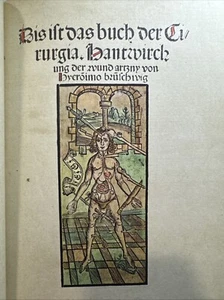 Dis ist das buch der Ci-
rurgia. Hantwirck
ung der wund artzny von
Hyeronimo brüschwig